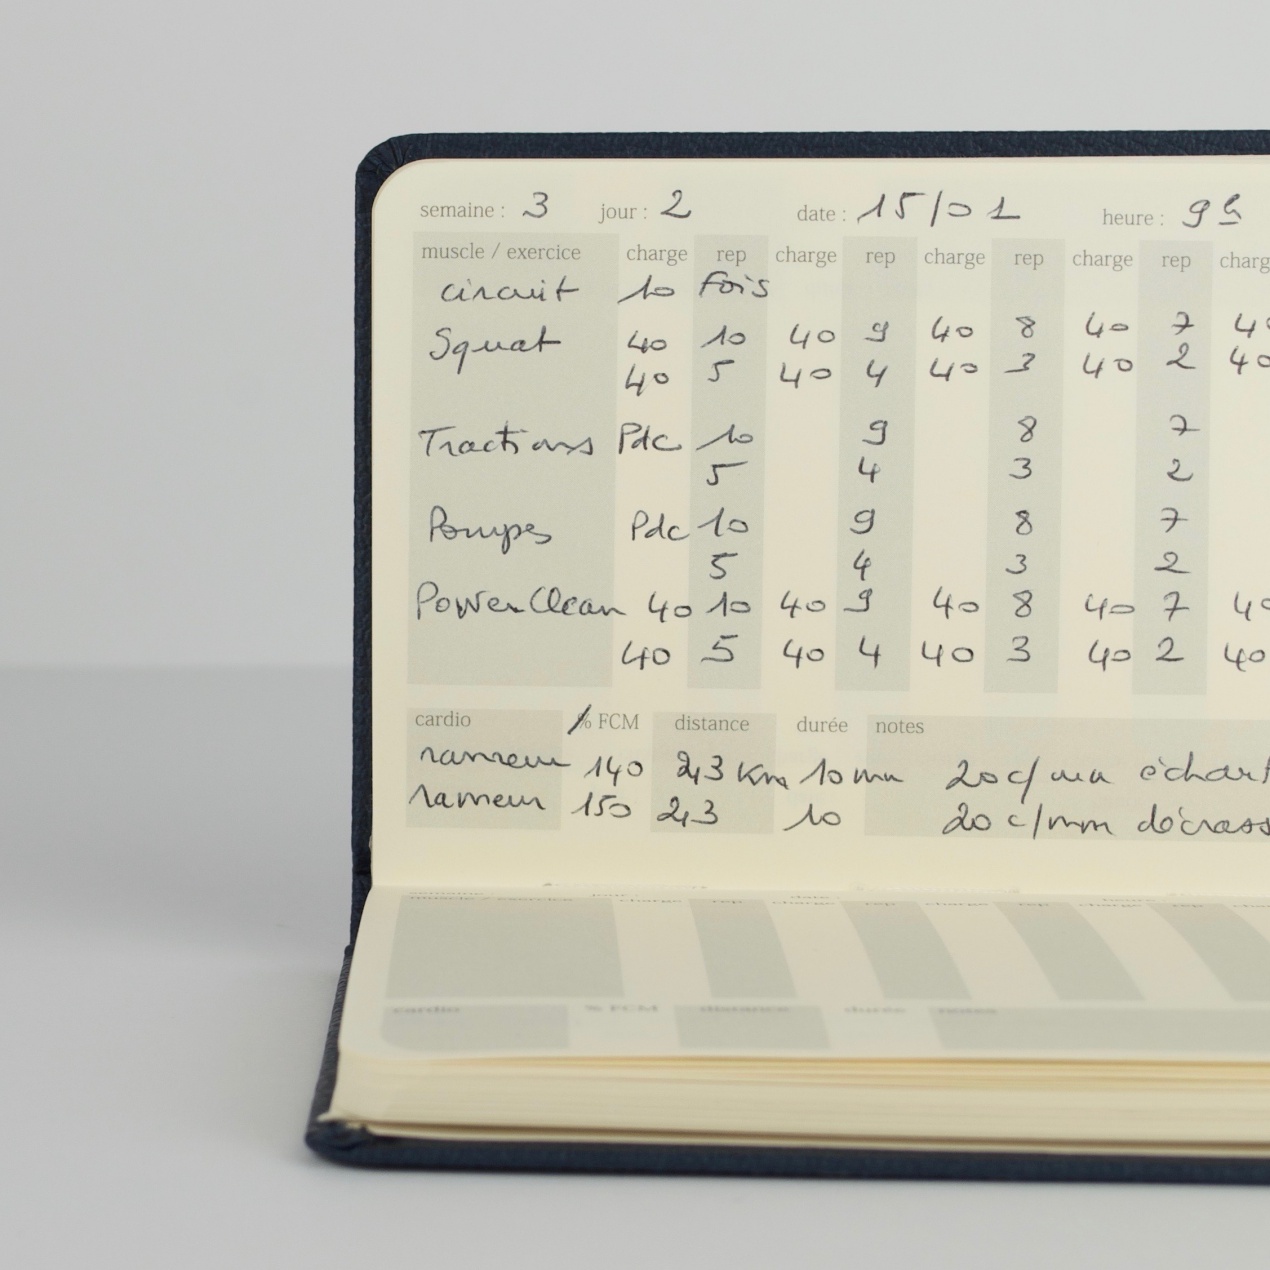 semaine : 3 jour : 2 date : 15/01 heure : 9h
muscle / exercice charge rep charge rep charge rep charge rep charg
circuit 10 fois
Squat 40 10 40 9 40 8 40 7 40
40 5 40 4 40 3 40 2 40
Tractions Pdc 10 9 8 7
5 4 3 2
Pompes Pdc 10 9 8 7
5 4 3 2
PowerClean 40 10 40 9 40 8 40 7 40
40 5 40 4 40 3 40 2 40
cardio % FCM distance durée notes
rameur 140 2,3 Km 10 mn 20 c/mn échauf
rameur 150 2,3 10 20 c/mn décrass
muscle / exercice charge rep charge rep charge rep charge rep
cardio % FCM distance durée notes